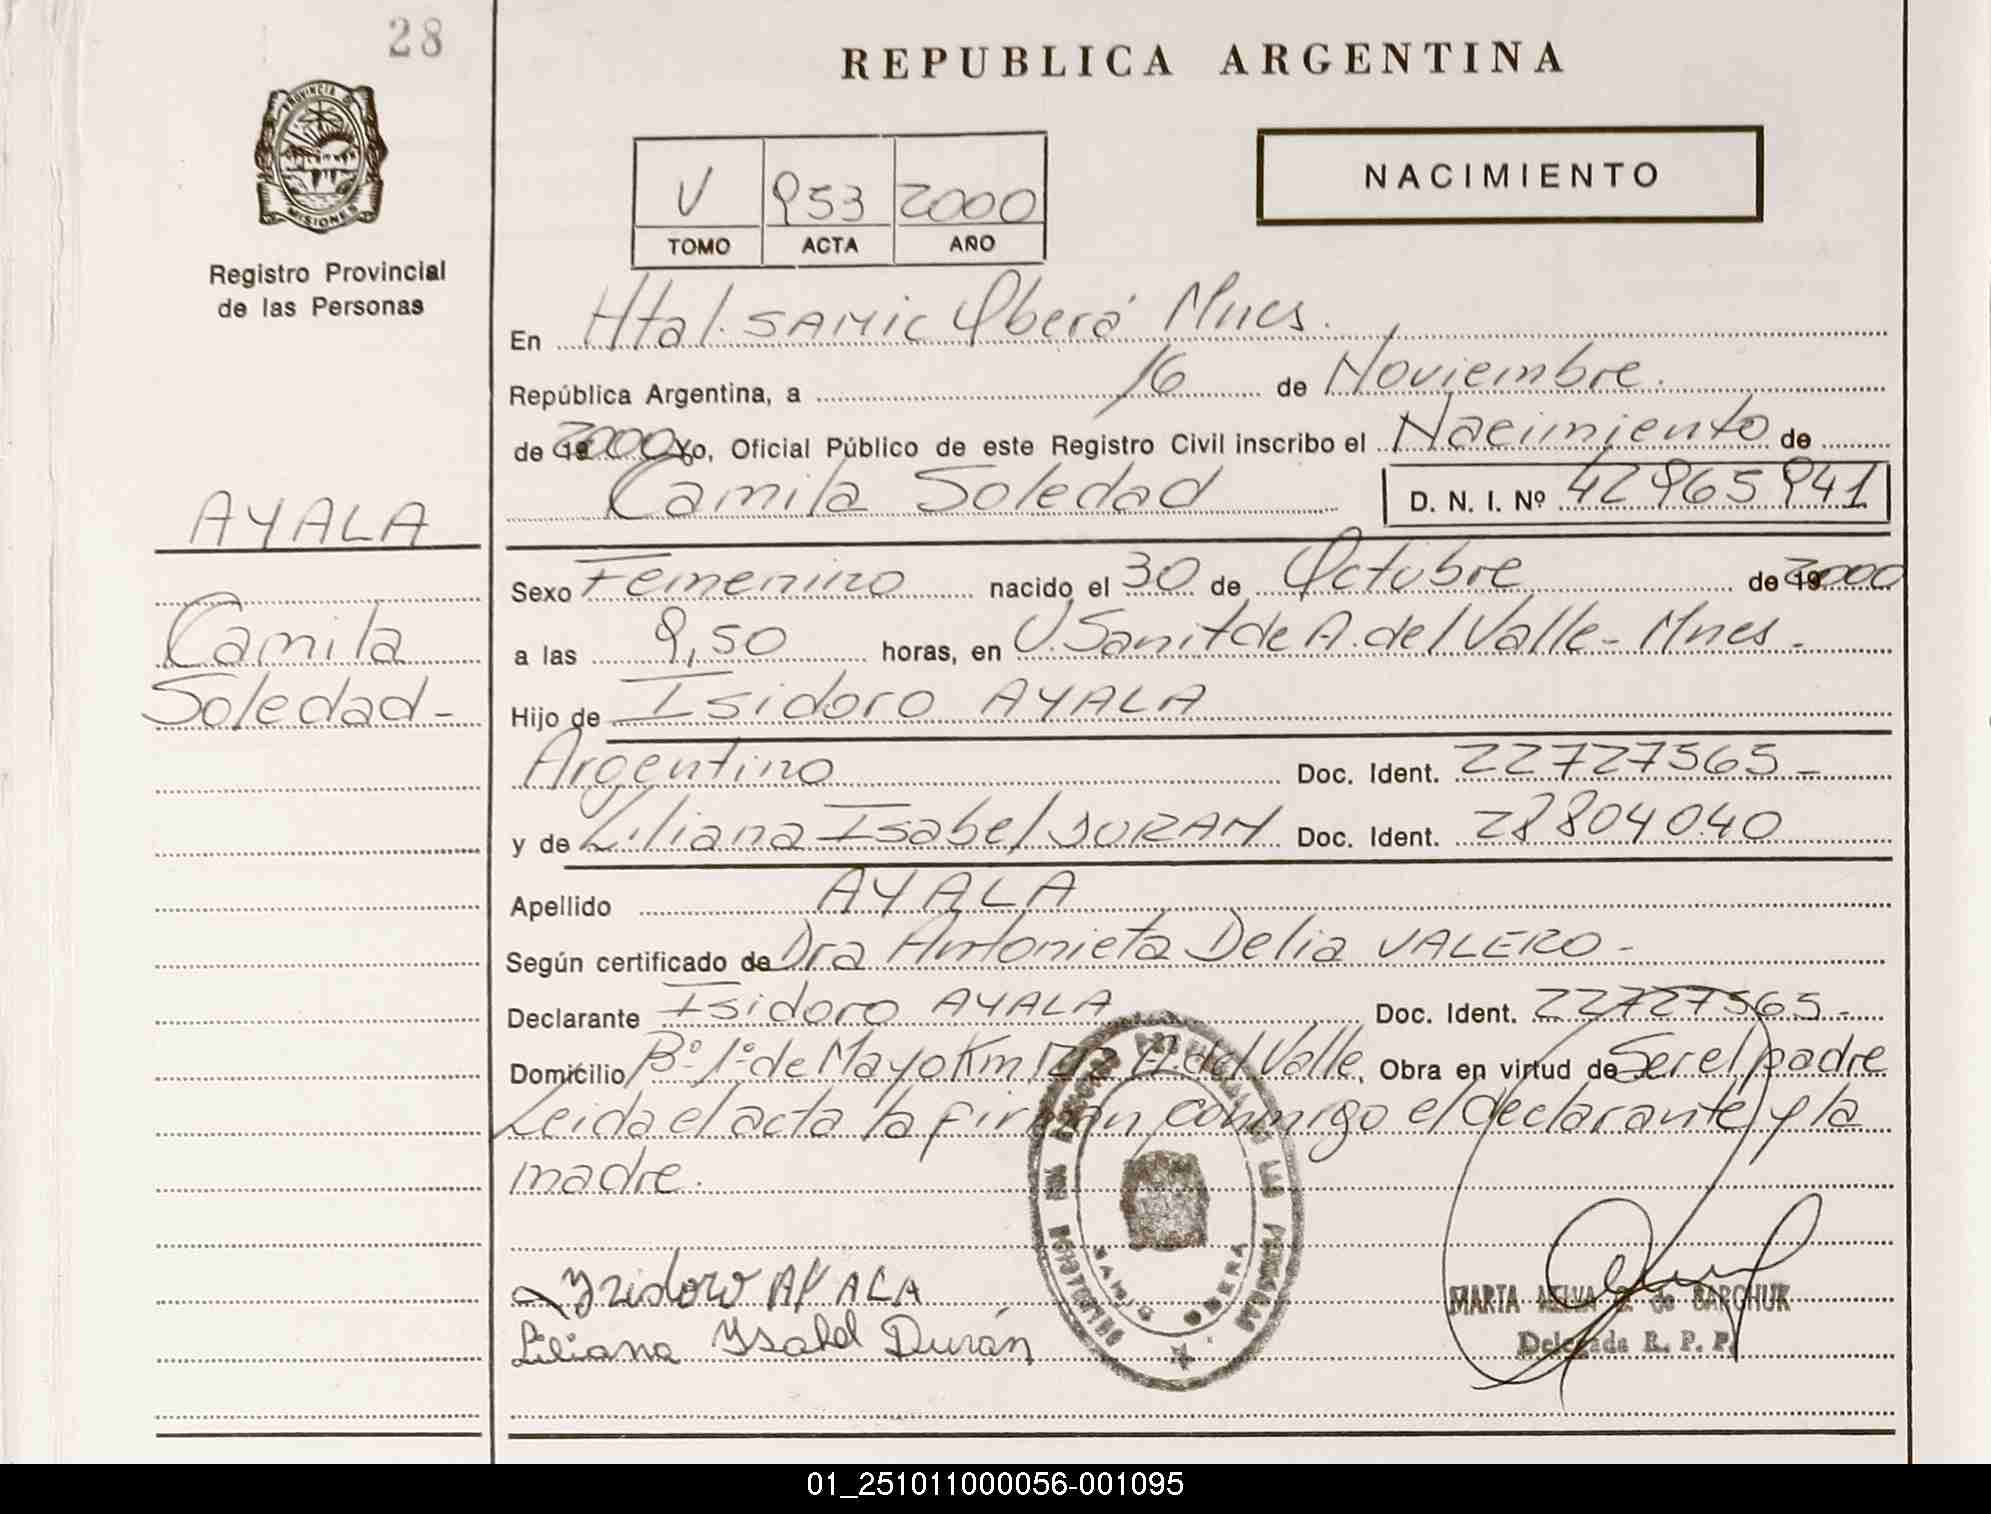 28
REPUBLICA ARGENTINA
PROVINCIA DE
MISIONES
Registro Provincial
de las Personas
V 953 2000
TOMO ACTA AÑO
NACIMIENTO
En Htal. SAMIC Oberá Mnes.
República Argentina, a 16 de Noviembre.
de 2000 Yo, Oficial Público de este Registro Civil inscribo el Nacimiento de
Camila Soledad D. N. I. Nº 42965941
AYALA
Camila
Soledad -
Sexo Femenino nacido el 30 de Octubre de 2000
a las 9,50 horas, en U. Sanit de A. del Valle - Mnes.
Hijo de Isidoro AYALA
Argentino Doc. Ident. 22727565 -
y de Liliana Isabel DURAN Doc. Ident. 28804040
Apellido AYALA
Según certificado de Dra Antonieta Delia VALERO -
Declarante Isidoro AYALA Doc. Ident. 22727565 -
Domicilio Bº 1º de Mayo Km A. del Valle, Obra en virtud de Ser el padre
Leida el acta la firman conmigo el declarante y la
madre.
Yzidoro AYALA
Liliana Ysabel Durán
SAMIC OBERA
MARTA MELVA de BARCHUK
Delegada R. P. P.
01_251011000056-001095